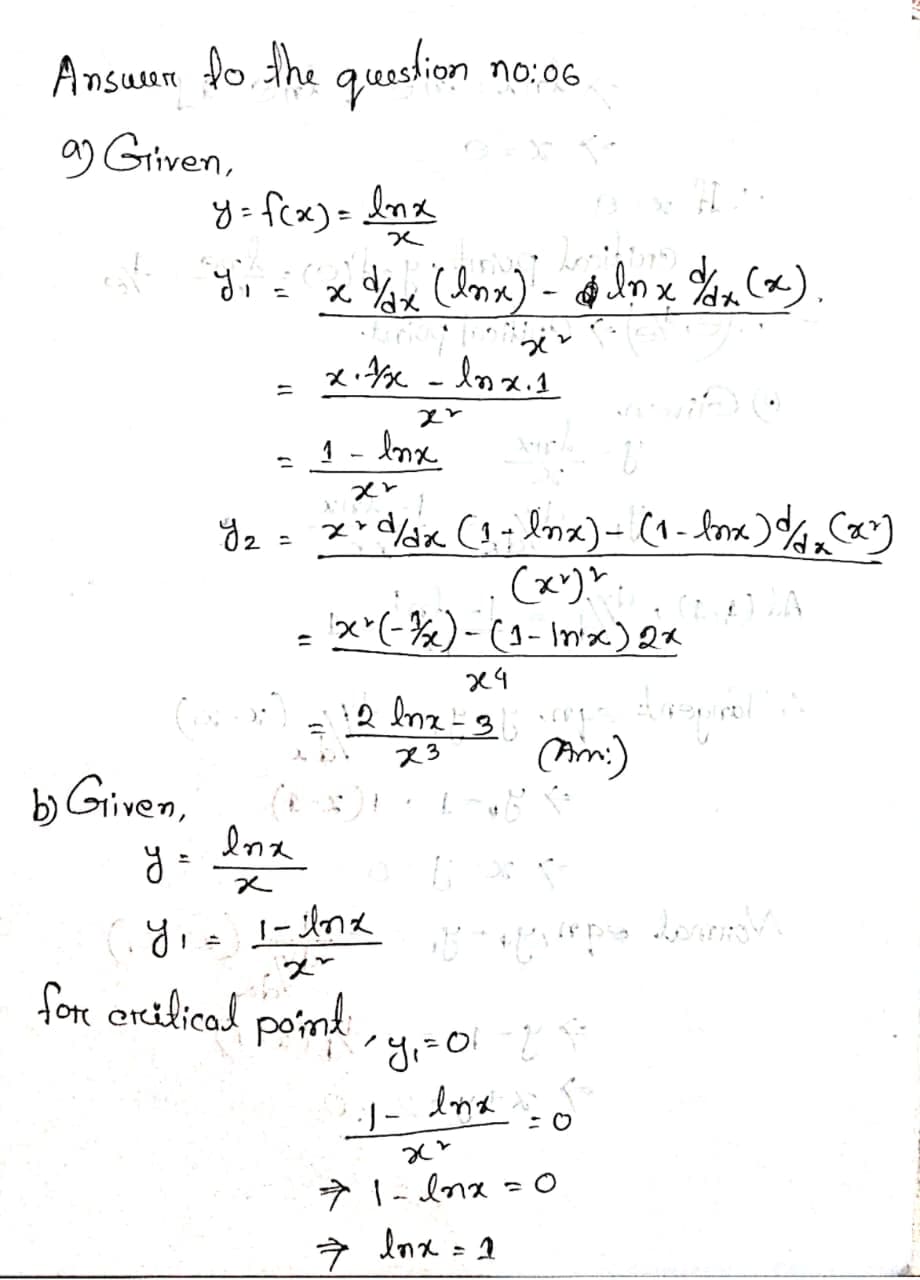 Answer to the question no:06
a) Given,
y = f(x) = lnx/x
y₁ = (x d/dx (lnx) - lnx d/dx (x))/x²
= (x.1/x - lnx.1)/x²
= (1 - lnx)/x²
y₂ = (x² d/dx (1 - lnx) - (1 - lnx) d/dx (x²))/(x²)²
= (x²(-1/x) - (1 - lnx) 2x)/x⁴
= (2 lnx - 3)/x³ (Ans:)
b) Given,
y = lnx/x
y₁ = (1 - lnx)/x²
for critical point, y₁ = 0
(1 - lnx)/x² = 0
⇒ 1 - lnx = 0
⇒ lnx = 1